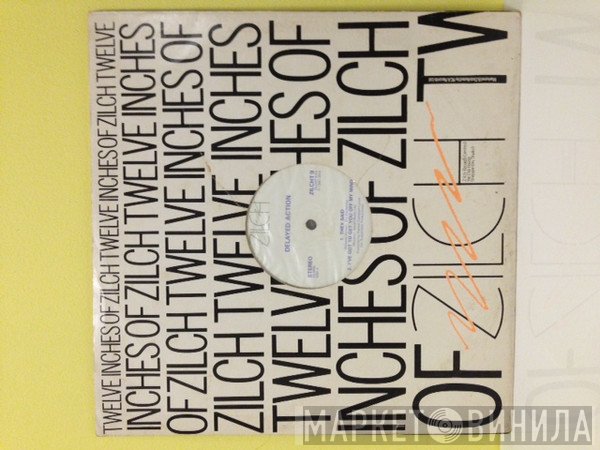 TWELVE INCHES OF ZILCH TWELVE INCHES OF ZILCH TWELVE
INCHES OF ZILCH TWELVE INCHES
OF ZILCH TWELVE INCHES OF
ZILCH TWELVE INCHES
TWELVE INCHES OF
INCHES OF ZILCH
OF ZILCH TW
ZILCH
DELAYED ACTION
STEREO
ZILCHT 9
1. THEY SAID
2. I'VE GOT TO GET YOU OFF MY MIND
МАРКЕТ ВИНИЛА